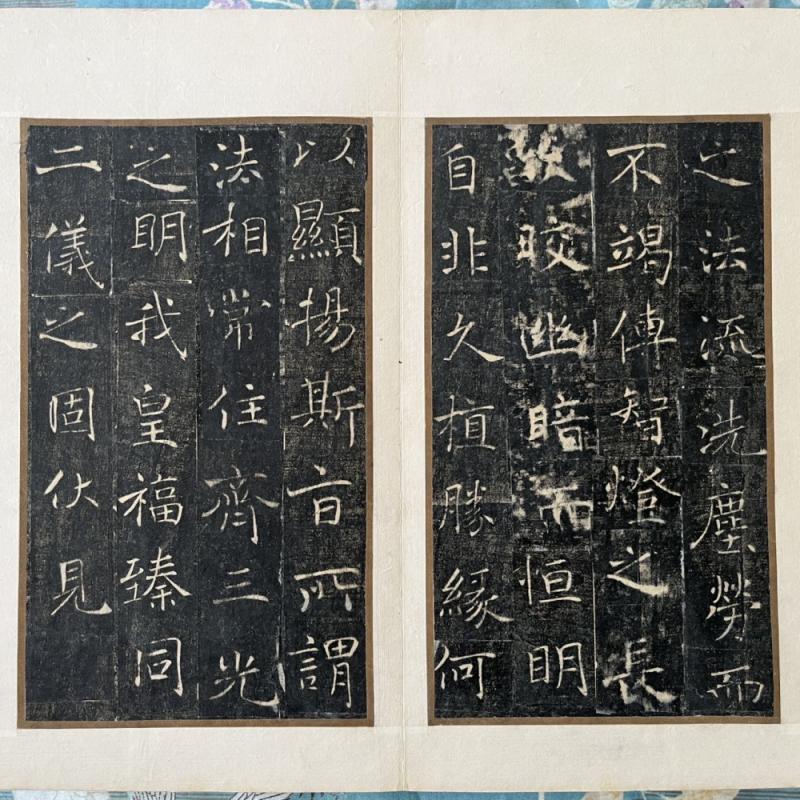 之法流洗塵勞而
不竭傳智燈之長
皎幽暗而恒明
自非久植勝緣何
以顯揚斯旨所謂
法相常住齊三光
之明我皇福臻同
二儀之固伏見